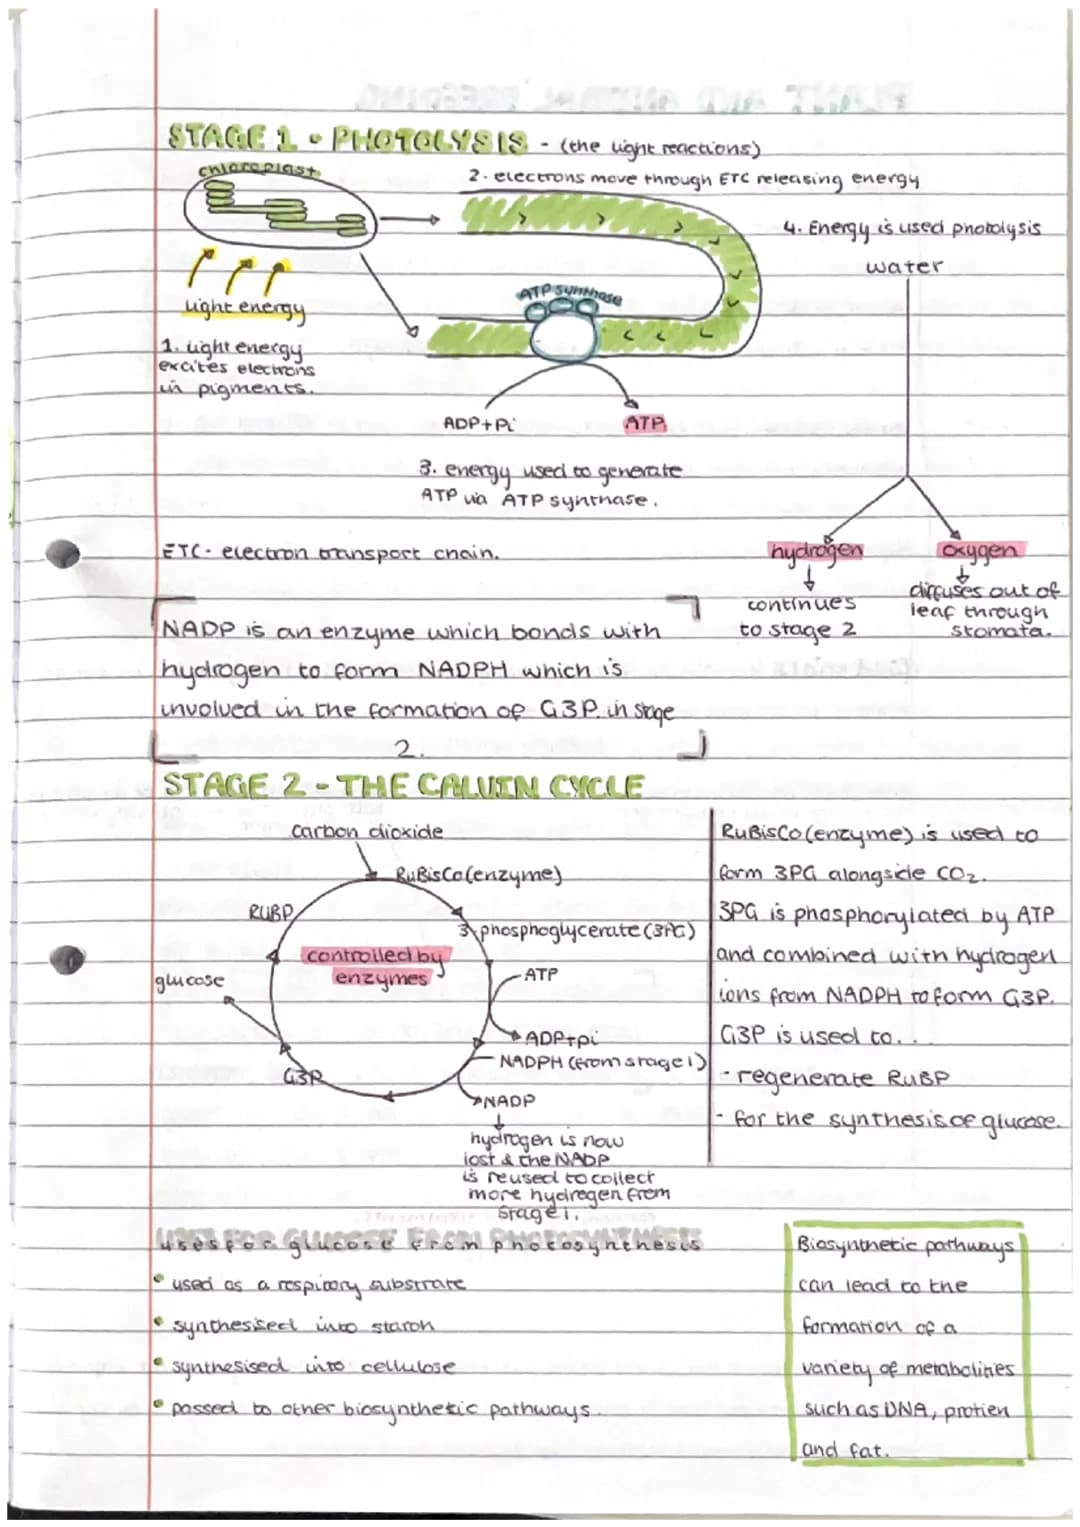 STAGE 1 - PHOTOLYSIS - (the light reactions)
chloroplast
2. electrons move through ETC releasing energy
4. Energy is used photolysis
water
light energy
ATP synthase
1. light energy
excites electrons
in pigments.
ADP+Pi
ATP
3. energy used to generate
ATP via ATP synthase.
ETC - electron transport chain.
hydrogen
oxygen
continues
to stage 2
diffuses out of
leaf through
stomata.
NADP is an enzyme which bonds with
hydrogen to form NADPH which is
involved in the formation of G3P. in stage
2.
STAGE 2 - THE CALVIN CYCLE
carbon dioxide
RuBisCo (enzyme)
RUBP
3-phosphoglycerate (3PG)
controlled by
enzymes
glucose
ATP
ADP+pi
NADPH (from stage 1)
G3P
NADP
hydrogen is now
lost & the NADP
is reused to collect
more hydrogen from
stage 1.
RuBisCo (enzyme) is used to
form 3PG alongside CO2.
3PG is phosphorylated by ATP
and combined with hydrogen
ions from NADPH to form G3P.
G3P is used to...
- regenerate RuBP
- for the synthesis of glucose.
uses for glucose from photosynthesis
• used as a respitory substrate
• synthesised into starch
• synthesised into cellulose
• passed to other biosynthetic pathways.
Biosynthetic pathways
can lead to the
formation of a
variety of metabolities
such as DNA, protien
and fat.